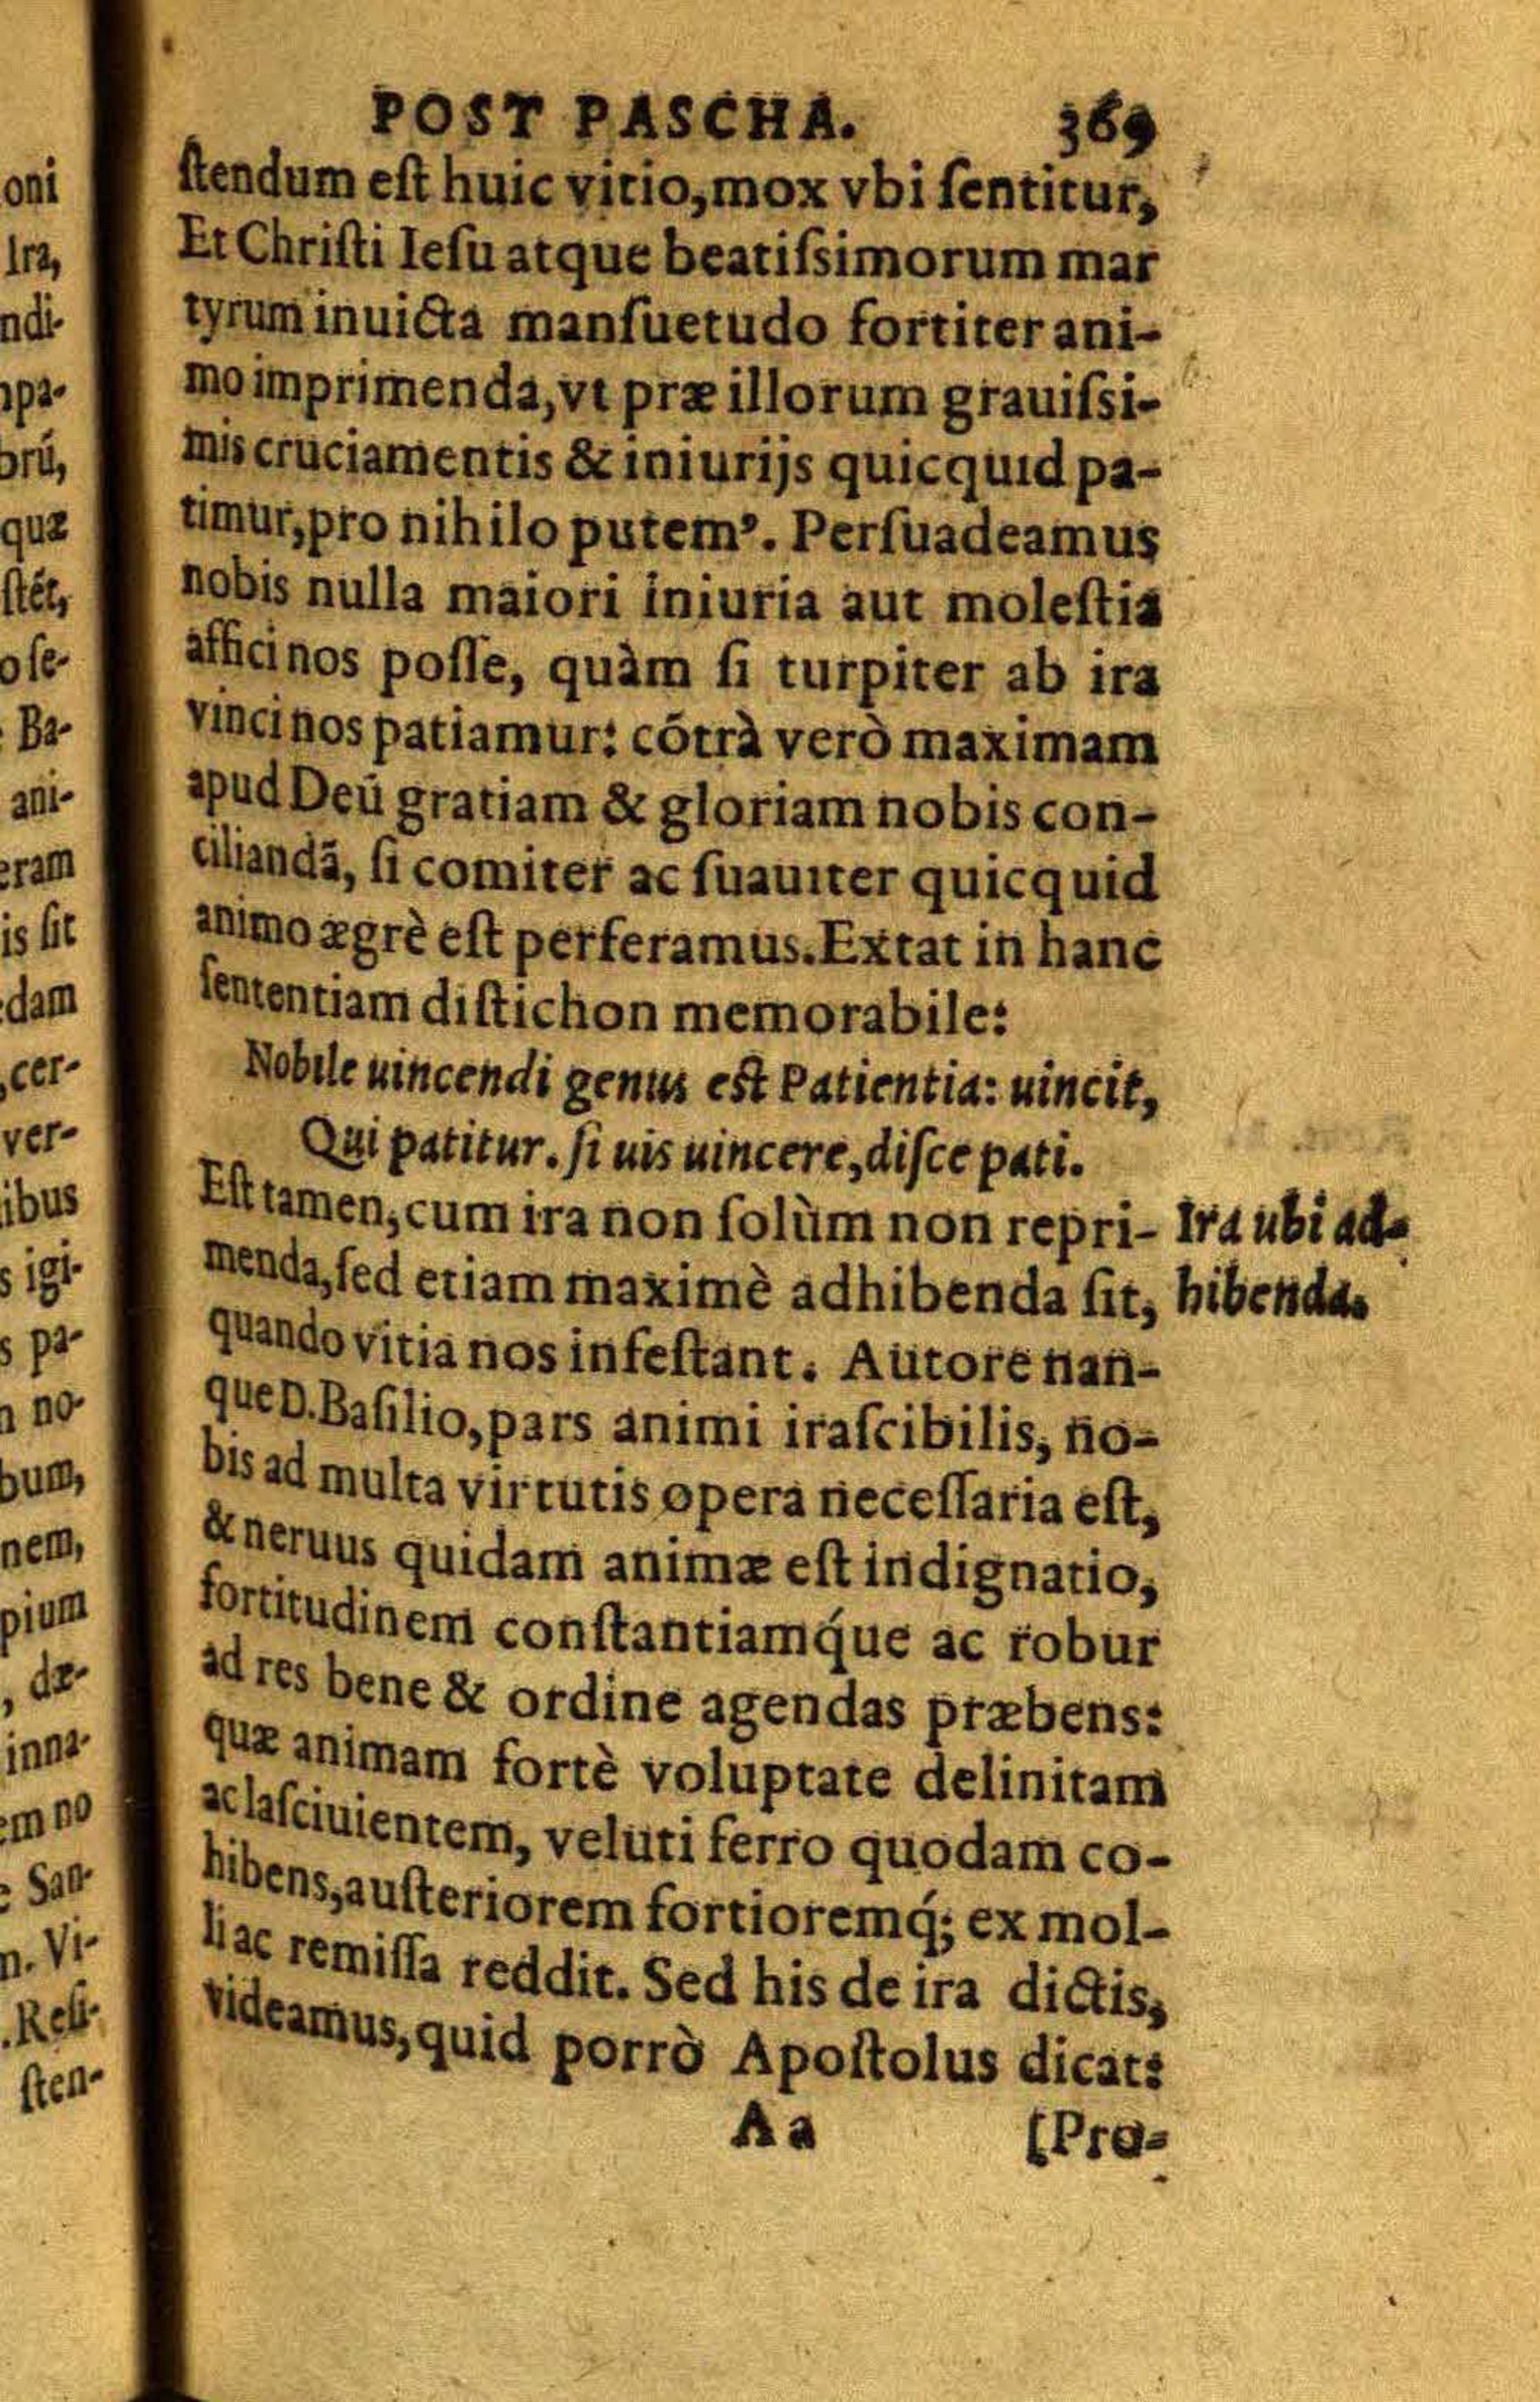 POST PASCHA. 369
ſtendum eſt huic vitio, mox vbi ſentitur,
Et Chriſti Ieſu atque beatiſsimorum mar
tyrum inuicta manſuetudo fortiter ani-
mo imprimenda, vt præ illorum grauiſsi-
mis cruciamentis & iniurijs quicquid pa-
timur, pro nihilo putemꝰ. Perſuadeamus
nobis nulla maiori iniuria aut moleſtia
affici nos poſſe, quàm ſi turpiter ab ira
vinci nos patiamur: cõtrà verò maximam
apud Deũ gratiam & gloriam nobis con-
ciliandã, ſi comiter ac ſuauiter quicquid
animo ægrè eſt perferamus. Extat in hanc
ſententiam diſtichon memorabile:
Nobile uincendi genus eſt Patientia: uincit,
Qui patitur. ſi uis uincere, diſce pati.
Eſt tamen, cum ira non ſolùm non repri-
menda, ſed etiam maximè adhibenda ſit,
Ira ubi ad-
hibenda.
quando vitia nos infeſtant. Autore nan-
que D. Baſilio, pars animi iraſcibilis, no-
bis ad multa virtutis opera neceſſaria eſt,
& neruus quidam animæ eſt indignatio,
fortitudinem conſtantiamq́ue ac robur
ad res bene & ordine agendas præbens:
quæ animam fortè voluptate delinitam
ac laſciuientem, veluti ferro quodam co-
hibens, auſteriorem fortioremq́; ex mol-
li ac remiſſa reddit. Sed his de ira dictis,
videamus, quid porrò Apoſtolus dicat:
Aa [Pro-
oni
Ira,
ndi-
npa-
orú,
quæ
ſtét,
o ſe-
Ba-
ani-
eram
is ſit
dam
,cer-
ver-
ibus
s igi-
s pa-
n no-
bum,
nem,
pium
, dæ-
inna-
em no
San-
n. Vi-
.Reſi-
ſten-